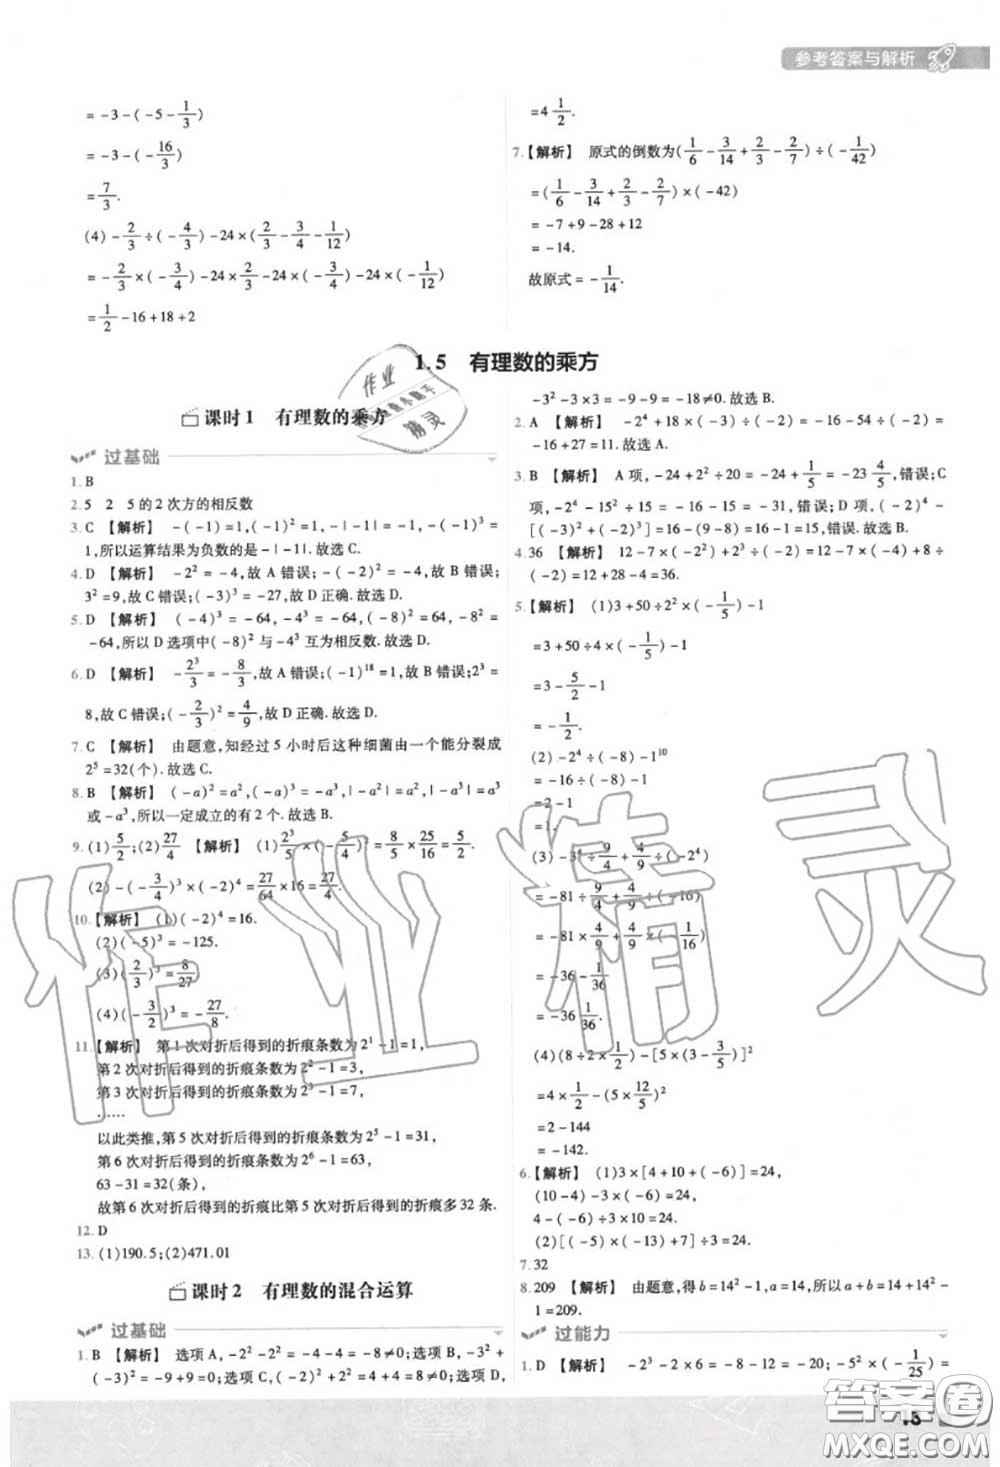 参考答案与解析
= -3-(-5-1/3)
= -3-(-16/3)
= 7/3.
(4)-2/3÷(-4/3)-24×(2/3-3/4-1/12)
= -2/3×(-3/4)-24×2/3-24×(-3/4)-24×(-1/12)
= 1/2-16+18+2
= 4 1/2.
7.【解析】 原式的倒数为(1/6-3/14+2/3-2/7)÷(-1/42)
= (1/6-3/14+2/3-2/7)×(-42)
= -7+9-28+12
= -14.
故原式= -1/14.
1.5 有理数的乘方
课时1 有理数的乘方
过基础
1. B
2. 5 2 5的2次方的相反数
3. C 【解析】 -(-1)=1,(-1)²=1,-|-1|=-1,-(-1)³=
1,所以运算结果为负数的是-|-1|.故选C.
4. D 【解析】 -2²=-4,故A错误;-(-3)=3,故B错误;
3²=9,故C错误;(-3)³=-27,故D正确.故选D.
5. D 【解析】 (-4)³=-64,-4³=-64,(-8)²=64,-8²=
-64,所以D选项中(-8)²与-4³互为相反数.故选D.
6. D 【解析】 -2³/3=-8/3,故A错误;(-1)¹⁸=1,故B错误;2³=
8,故C错误;(-2/3)²=4/9,故D正确.故选D.
7. C 【解析】 由题意,知经过5小时后这种细菌由一个能分裂成
2⁵=32(个).故选C.
8. B 【解析】 (-a)²=a²,(-a)³=-a³,|-a²|=a²,|a³|=a³
或-a³,所以一定成立的有2个.故选B.
9. (1)5/2;(2)27/4 【解析】 (1)2³/5×(-5/4)²=8/5×25/16=5/2.
(2)-(-3/4)³×(-2)⁴=27/64×16=27/4.
10.【解析】 (1)(-2)⁴=16.
(2)(-5)³=-125.
(3)(2/3)³=8/27.
(4)(-3/2)³=-27/8.
11.【解析】 第1次对折后得到的折痕条数为2¹-1=1,
第2次对折后得到的折痕条数为2²-1=3,
第3次对折后得到的折痕条数为2³-1=7,
……
以此类推,第5次对折后得到的折痕条数为2⁵-1=31,
第6次对折后得到的折痕条数为2⁶-1=63,
63-31=32(条),
故第6次对折后得到的折痕比第5次对折后得到的折痕多32条.
12. D
13. (1)190.5;(2)471.01
课时2 有理数的混合运算
过基础
1. B 【解析】 选项A,-2²-2²=-4-4=-8≠0;选项B,-3²+
(-3)²=-9+9=0;选项C,(-2)²+2²=4+4=8≠0;选项D,
-3²-3×3=-9-9=-18≠0.故选B.
2. A 【解析】 -2⁴+18×(-3)÷(-2)=-16-54÷(-2)=
-16+27=11.故选A.
3. B 【解析】 A项,-24+2²÷20=-24+1/5=-23 4/5,错误;C
项,-2⁴-15²÷15=-16-15=-31,错误;D项,(-2)⁴-
[(-3)²+(-2)³]=16-(9-8)=16-1=15,错误.故选B.
4. 36 【解析】 12-7×(-2²)+2³÷(-2)=12-7×(-4)+8÷
(-2)=12+28-4=36.
5.【解析】 (1)3+50÷2²×(-1/5)-1
= 3+50÷4×(-1/5)-1
= 3-5/2-1
= -1/2.
(2)-2⁴÷(-8)-1¹⁰
= -16÷(-8)-1
= 2-1
= 1.
(3)-3⁴÷9/4+4/9÷(-2⁴)
= -81÷9/4+4/9÷(-16)
= -81×4/9+4/9×(-1/16)
= -36-1/36
= -36 1/36.
(4)(8÷2×1/2)-[5×(3-3/5)]²
= 4×1/2-(5×12/5)²
= 2-144
= -142.
6.【解析】 (1)3×[4+10+(-6)]=24,
(10-4)-3×(-6)=24,
4-(-6)÷3×10=24.
(2)[(-5)×(-13)+7]÷3=24.
7. 32
8. 209 【解析】 由题意,得b=14²-1,a=14,所以a+b=14+14²-
1=209.
过能力
1. D 【解析】 -2³-2×6=-8-12=-20;-5²×(-1/25)=
作业
精灵
作业精灵
答案圈
MXQE.COM